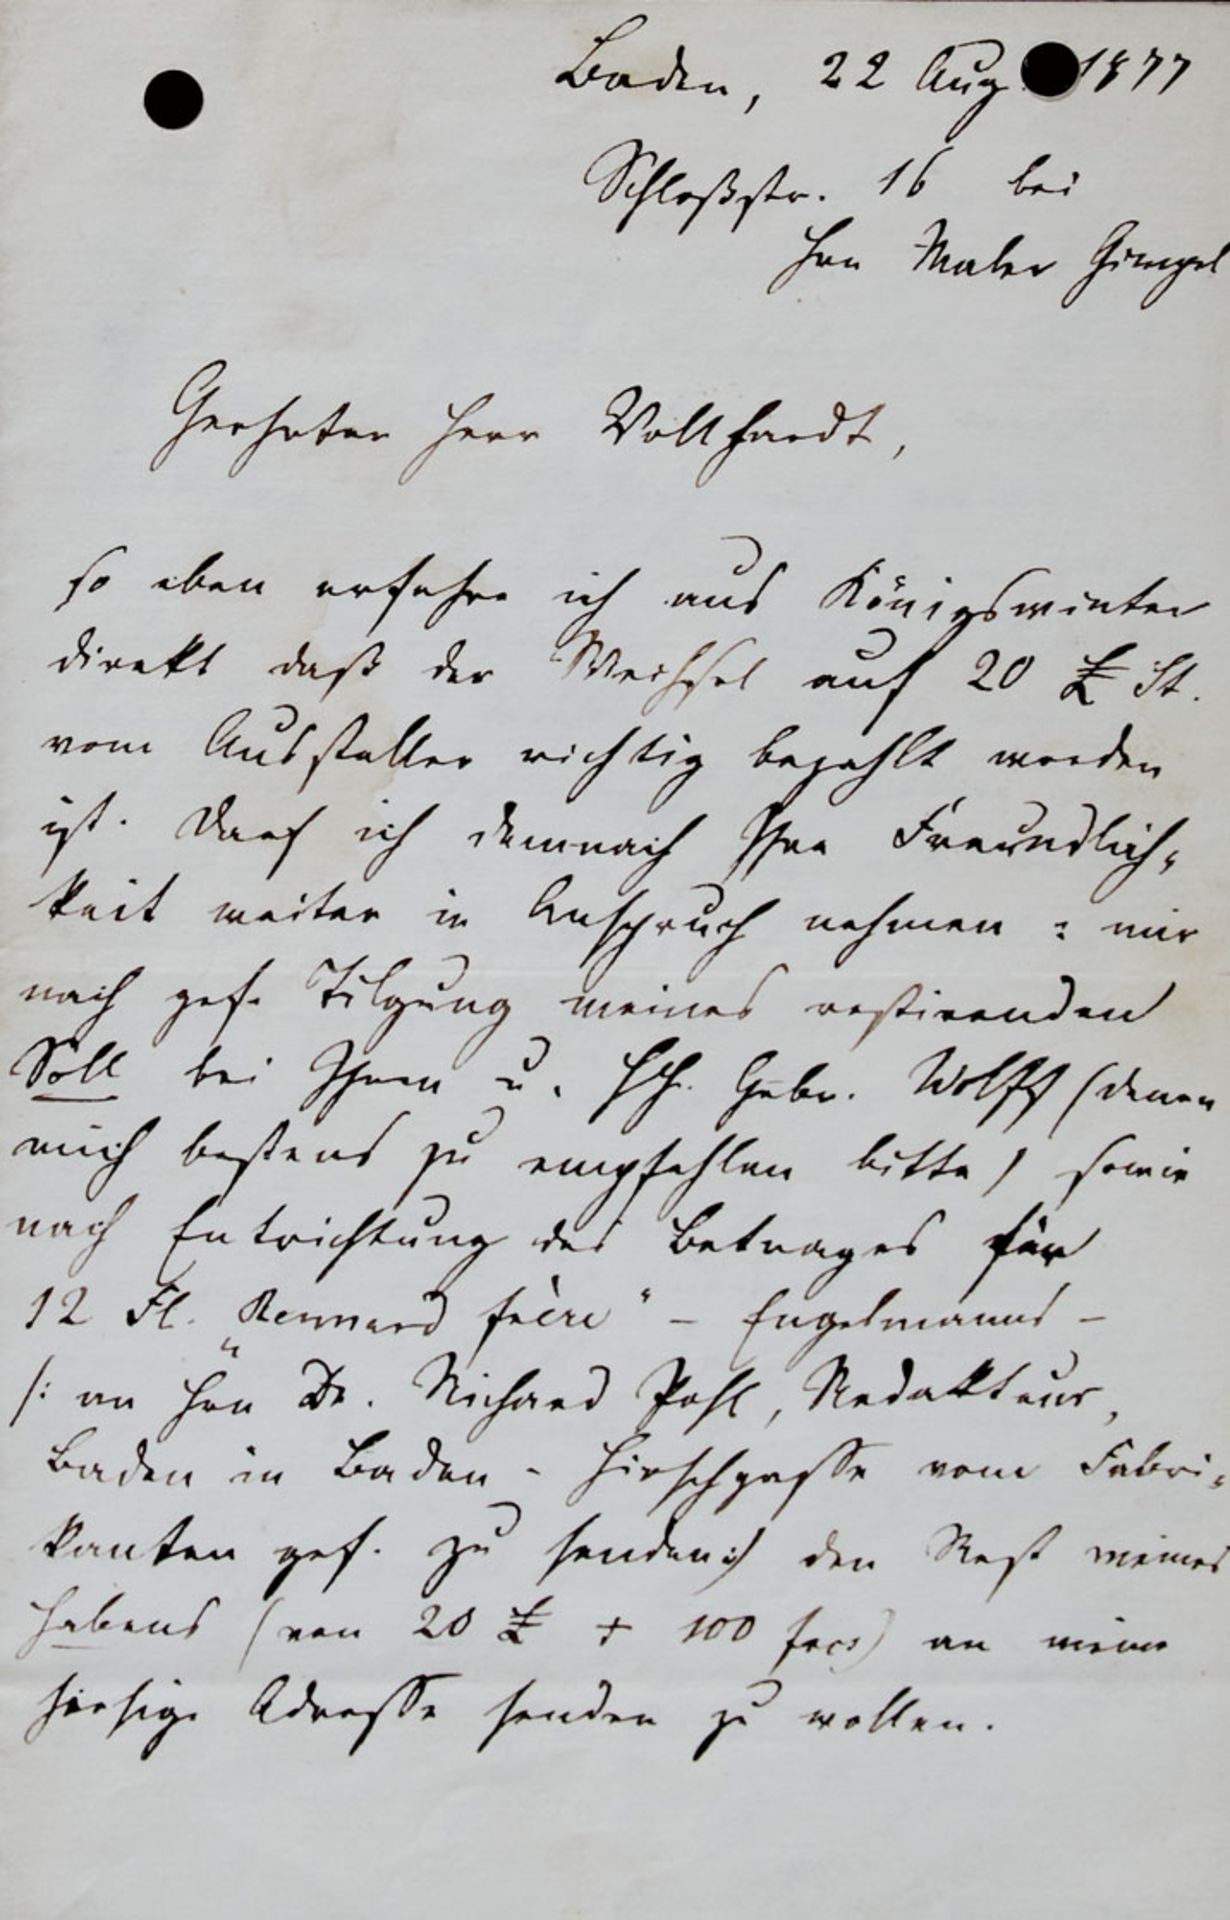 Baden, 22 Aug. 1877
Schloßstr. 16 bei
Hrn Maler Gimpel
Geehrter Herr Vollhardt,
so eben erfahre ich aus Königswinter
direkt daß der Wechsel auf 20 £ St.
vom Aussteller richtig bezahlt worden
ist. Darf ich demnach Ihre Freundlich-
keit weiter in Anspruch nehmen: mir
nach gef. Tilgung meines restirenden
Soll bei Ihnen u. HH. Gebr. Wolff (denen
mich bestens zu empfehlen bitte) sowie
nach Entrichtung des Betrages für
12 Fl. „Rennard frère“ – Engelmanns –
/: an Hrn Dr. Richard Pohl, Redakteur,
Baden in Baden - Hirschgasse vom Fabri-
kanten gef. zu senden :/ den Rest meines
Habens (von 20 £ + 100 frcs) an meine
hiesige Adresse senden zu wollen.